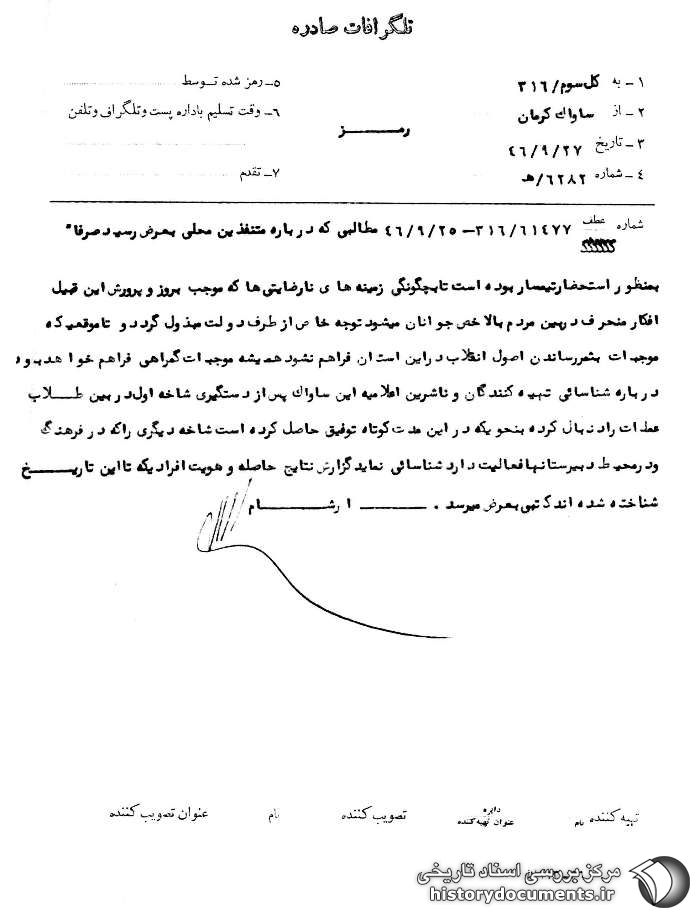 تلگرافات صادره
۱ - به کل سوم/۳۱۶
۵- رمز شده توسط
۲ - از ساواك كرمان
۶- وقت تسلیم باداره پست وتلگراف وتلفن
رمــز
۳ - تاریخ ۴۶/۹/۲۷
۴ - شماره ۶۲۸۲/هـ
۷- تقدم
شماره عطف ۳۱۶/۶۱۴۷۷-۴۶/۹/۲۵ مطالبی که درباره متنفذین محلی بعرض رسید صرفا"
بمنظور استحضارتیمسار بوده است تابچگونگی زمینه های نارضایتی ها که موجب بروز و پرورش این قبیل
افکار منحرف دربین مردم بالاخص جوانان میشود توجه خاص از طرف دولت مبذول گردد و تاموقعیکه
موجبات بثمررساندن اصول انقلاب دراین استان فراهم نشود همیشه موجبات گمراهی فراهم خواهدبود
درباره شناسائی تهیه کنندگان و ناشرین اعلامیه این ساواك پس از دستگیری شاخه اول دربین طــلاب
عملیات رادنبال کرده بنحویکه در این مدت کوتاه توفیق حاصل کرده است شاخه دیگری راکه در فرهنگ
ودرمحیط دبیرستانها فعالیت دارد شناسائی نماید گزارش نتایج حاصله و هویت افرادیکه تا این تاریــخ
شناخته شده اند کتبی بعرض میرسد . ـــــ ارشــام
تهیه کننده
نام
دایره
عنوان تهیه کننده
تصویب کننده
نام
عنوان تصویب کننده
مرکز بررسی اسناد تاریخی
historydocuments.ir